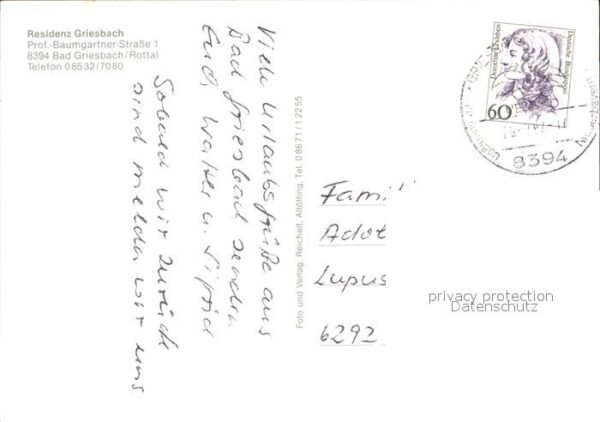 Residenz Griesbach
Prof.-Baumgartner-Straße 1
8394 Bad Griesbach/Rottal
Telefon 08532/7080
Viele Urlaubsgrüße aus
Bad Griesbach senden
Euch Walter u. Sigrid
Sobald wir zurück
sind melden wir uns
Foto und Verlag: Reichelt, Altötting, Tel. 08671/12255
Deutsche Bundespost
60
8394
Famil
Adolf
Lupus
6292
privacy protection
Datenschutz